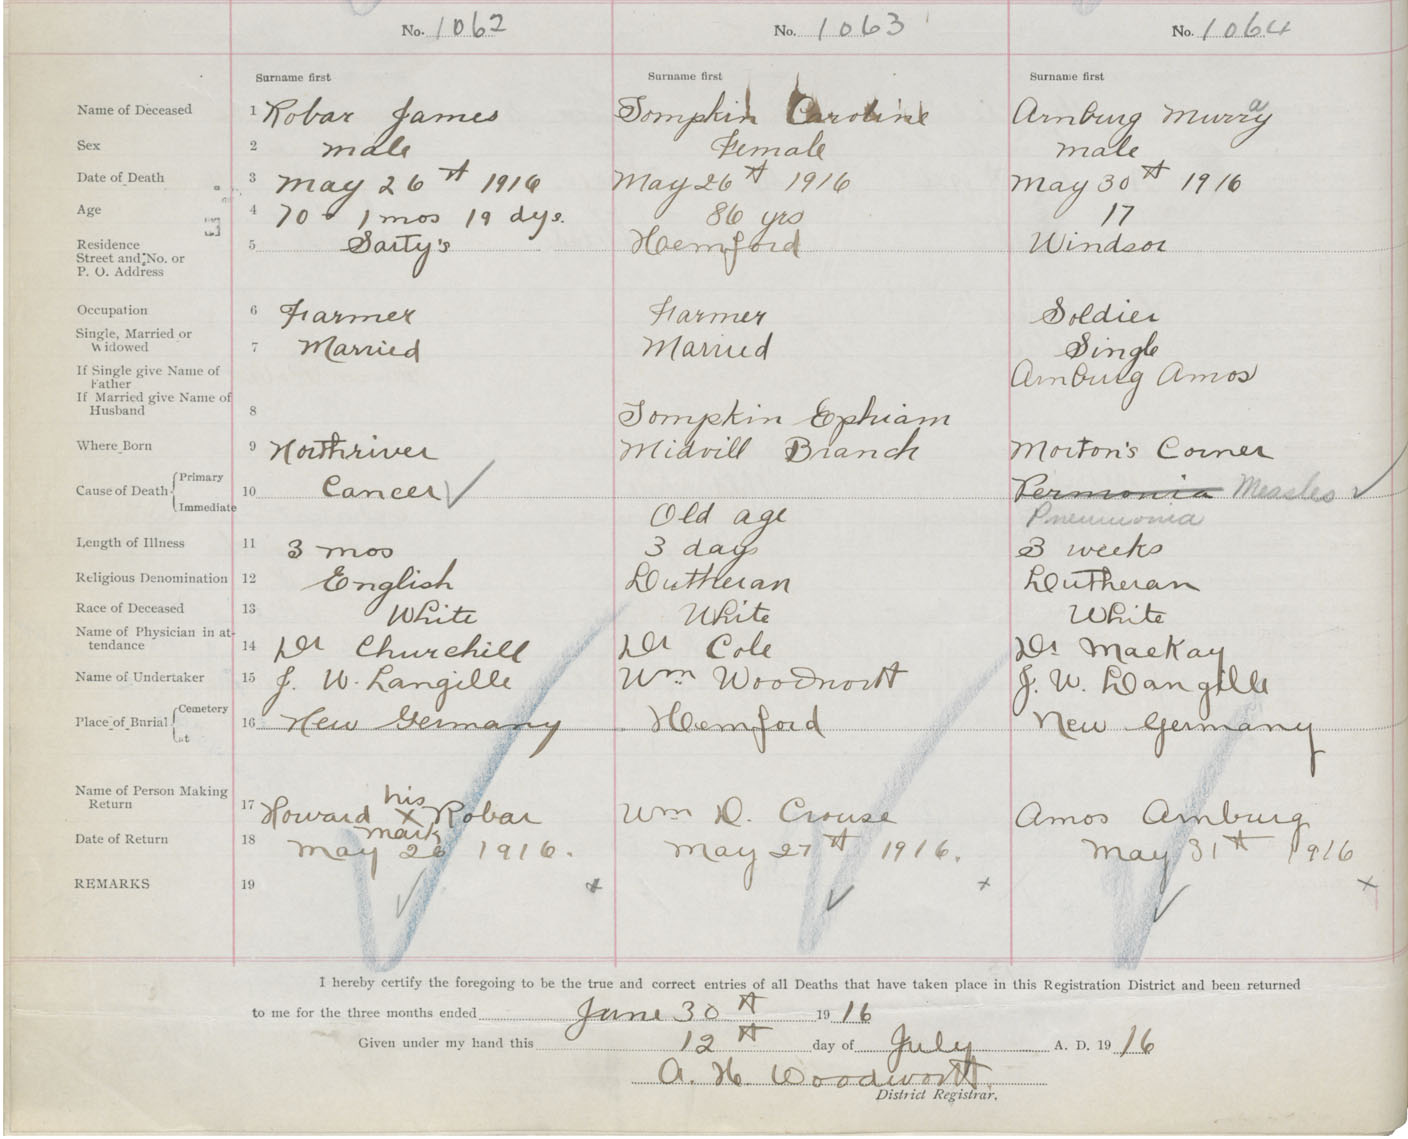 No. 1062 No. 1063 No. 1064
Surname first Surname first Surname first
Name of Deceased 1 Robar James Tompkin Caroline Arnburg Murray
Sex 2 male Female male
Date of Death 3 May 26th 1916 May 26th 1916 May 30th 1916
Age 4 70 1 mos 19 dys. 86 yrs 17
Residence Street and No. or P. O. Address 5 Sarty's Hemford Windsor
Occupation 6 Farmer Farmer Soldier
Single, Married or Widowed 7 Married Married Single
If Single give Name of Father Arnburg Amos
If Married give Name of Husband 8 Tompkin Ephiam
Where Born 9 Northriver Midvill Branch Morton's Corner
Cause of Death Primary 10 Cancer Permonia Measles
Immediate Old age Pneumonia
Length of Illness 11 3 mos 3 days 3 weeks
Religious Denomination 12 English Lutheran Lutheran
Race of Deceased 13 White White White
Name of Physician in attendance 14 Dr Churchill Dr Cole Dr MacKay
Name of Undertaker 15 J. W. Langille Wm Woodworth J. W. Langille
Place of Burial Cemetery at 16 New Germany Hemford New Germany
Name of Person Making Return 17 Howard his x mark Robar Wm D. Crouse Amos Arnburg
Date of Return 18 May 26 1916. May 27th 1916. May 31th 1916
REMARKS 19 x x x
I hereby certify the foregoing to be the true and correct entries of all Deaths that have taken place in this Registration District and been returned
to me for the three months ended June 30th 1916
Given under my hand this 12th day of July A. D. 1916
A. H. Woodworth.
District Registrar.